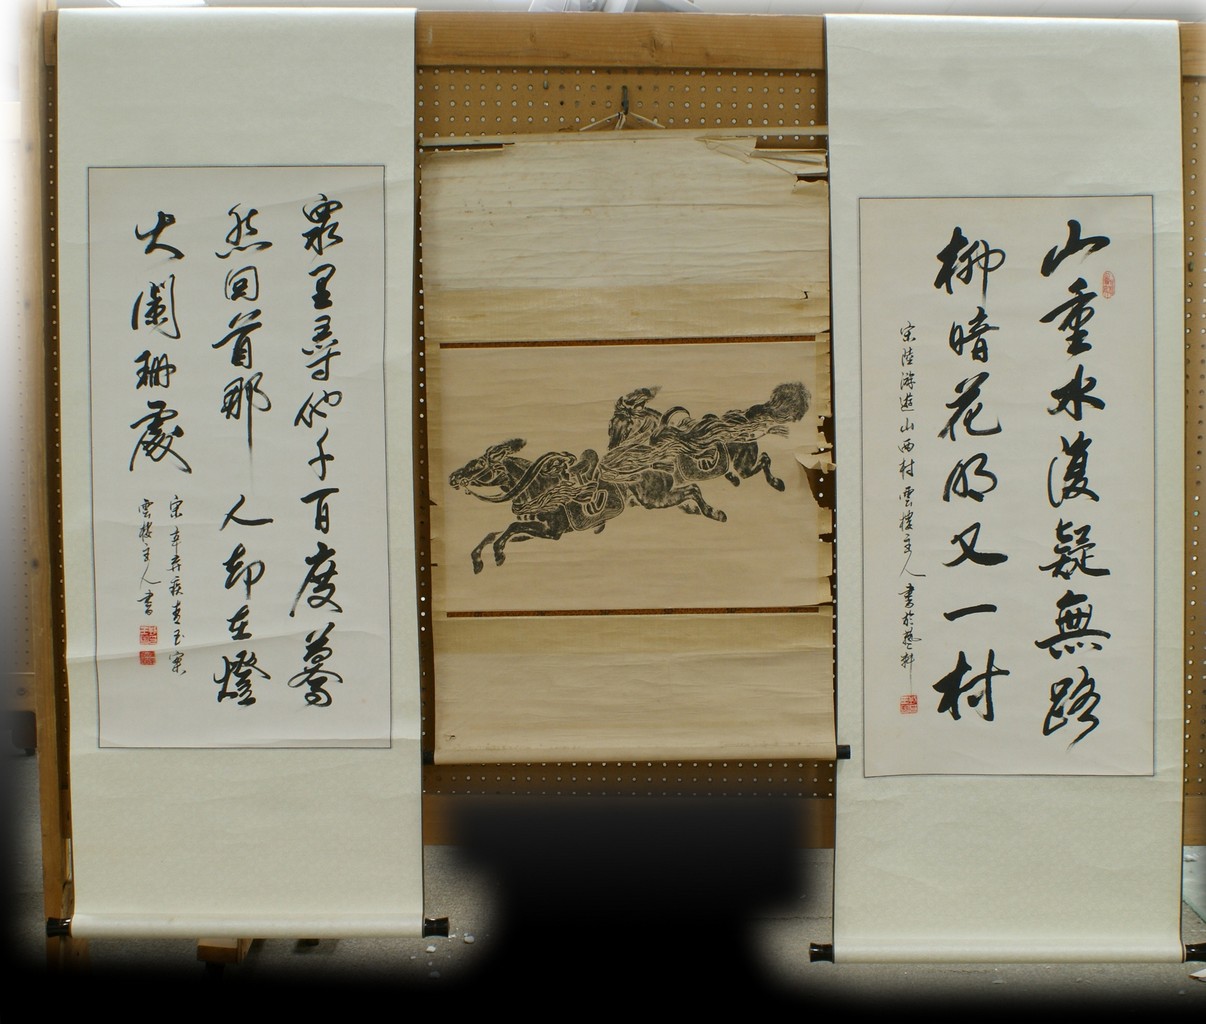 山重水復疑無路
柳暗花明又一村
宋陸游遊山西村雲樓主人書於藝軒
眾里尋他千百度驀
然回首那人却在燈
火闌珊處
宋辛弃疾青玉案
雲樓主人書